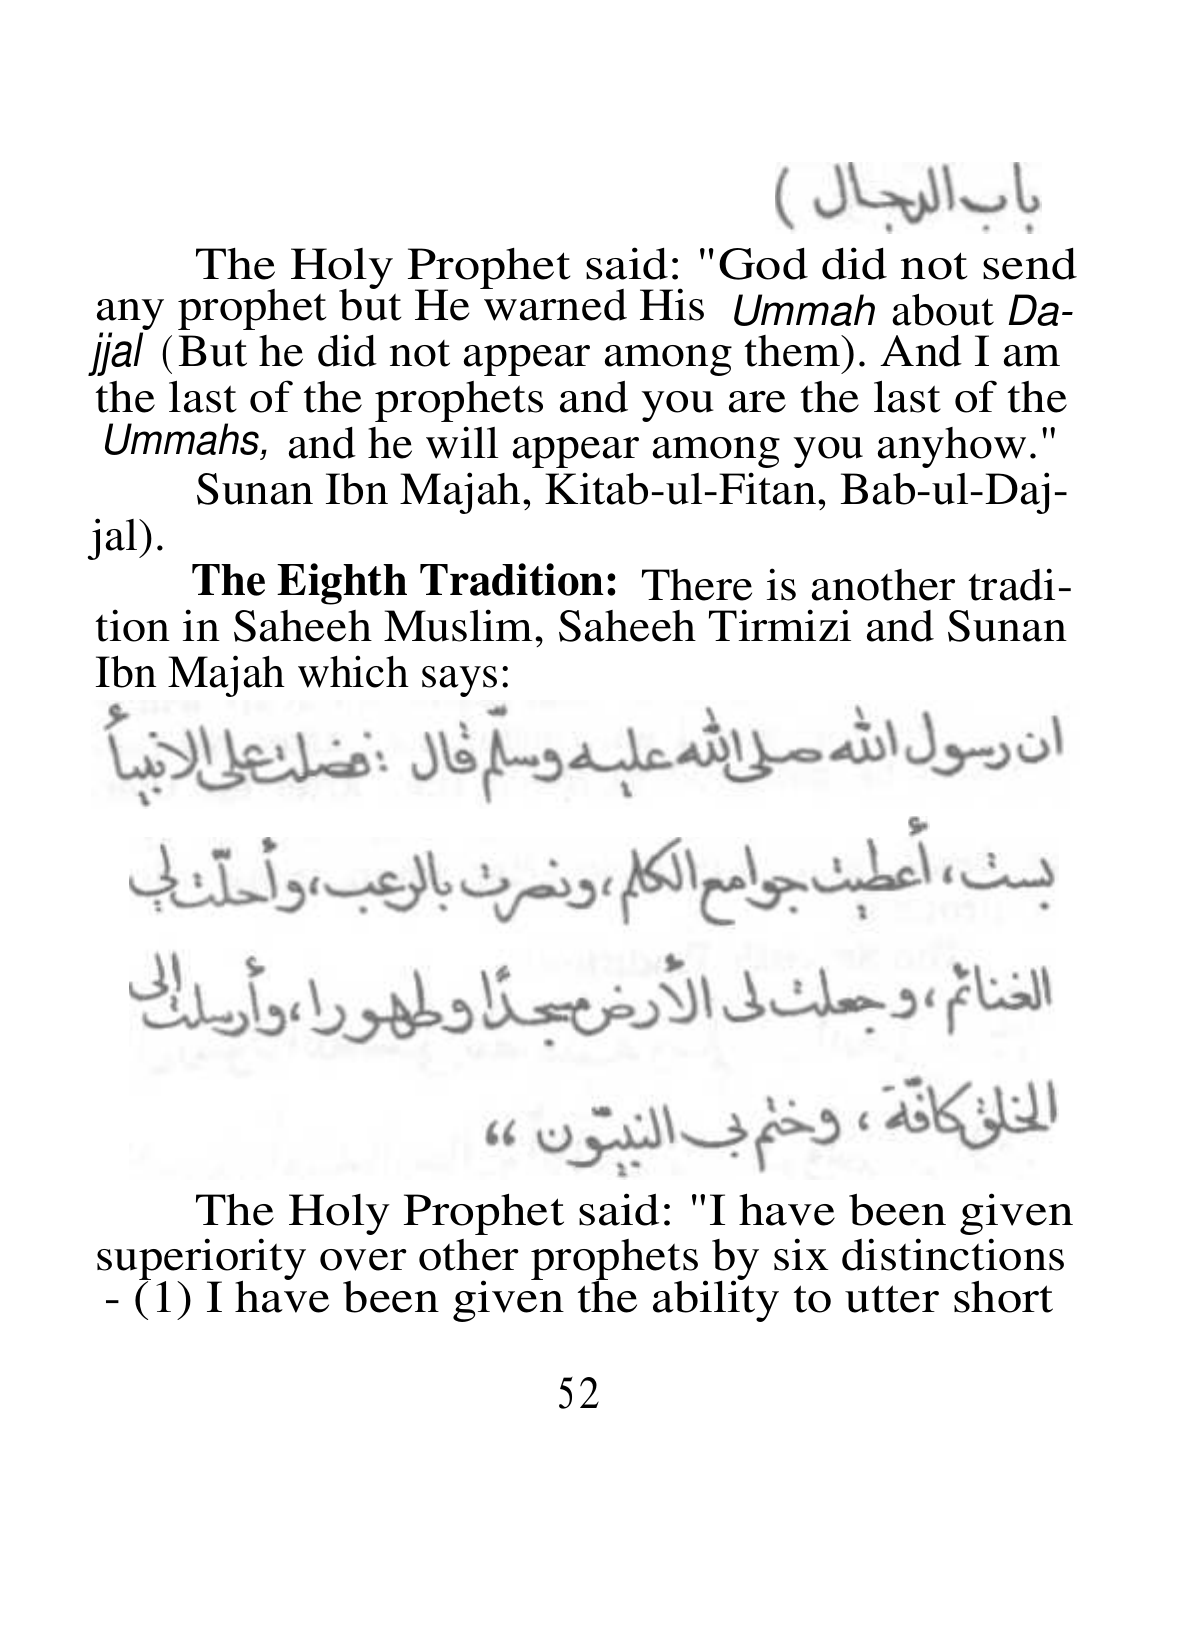 باب الدجال )
The Holy Prophet said: "God did not send
any prophet but He warned His Ummah about Da-
jjal (But he did not appear among them). And I am
the last of the prophets and you are the last of the
Ummahs, and he will appear among you anyhow."
Sunan Ibn Majah, Kitab-ul-Fitan, Bab-ul-Daj-
jal).
The Eighth Tradition: There is another tradi-
tion in Saheeh Muslim, Saheeh Tirmizi and Sunan
Ibn Majah which says:
ان رسول الله صلى الله عليه وسلّم قال : فضلت على الانبيأ
بست ، أعطيت جوامع الكلم ، ونصرت بالرعب ، وأحلّت لي
الغنائم ، وجعلت لى الأرض مسجدًا وطهورا ، وأرسلت إلى
الخلق كافّة ، وختم بي النبيّون “
The Holy Prophet said: "I have been given
superiority over other prophets by six distinctions
- (1) I have been given the ability to utter short
52